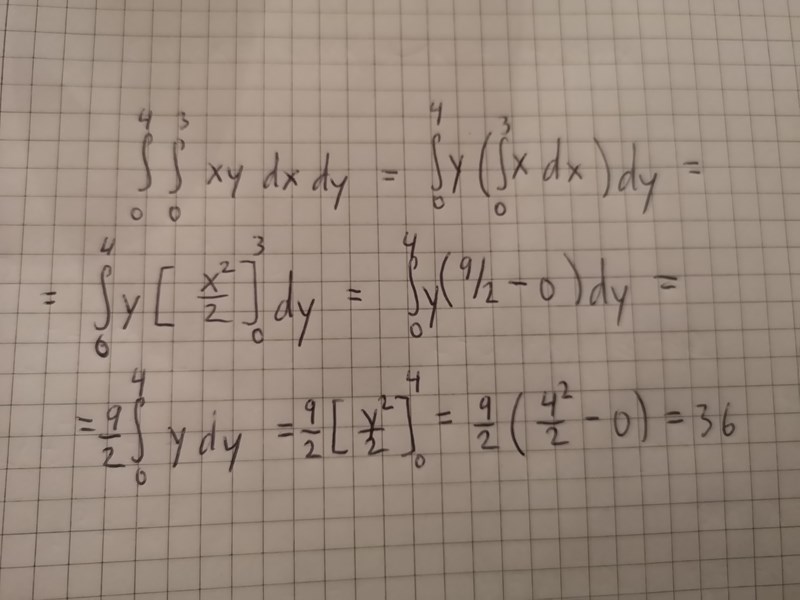 ∫₀⁴ ∫₀³ xy dx dy = ∫₀⁴ y (∫₀³ x dx) dy =
= ∫₀⁴ y [x²/2]₀³ dy = ∫₀⁴ y (9/2 − 0) dy =
= 9/2 ∫₀⁴ y dy = 9/2 [y²/2]₀⁴ = 9/2 (4²/2 − 0) = 36